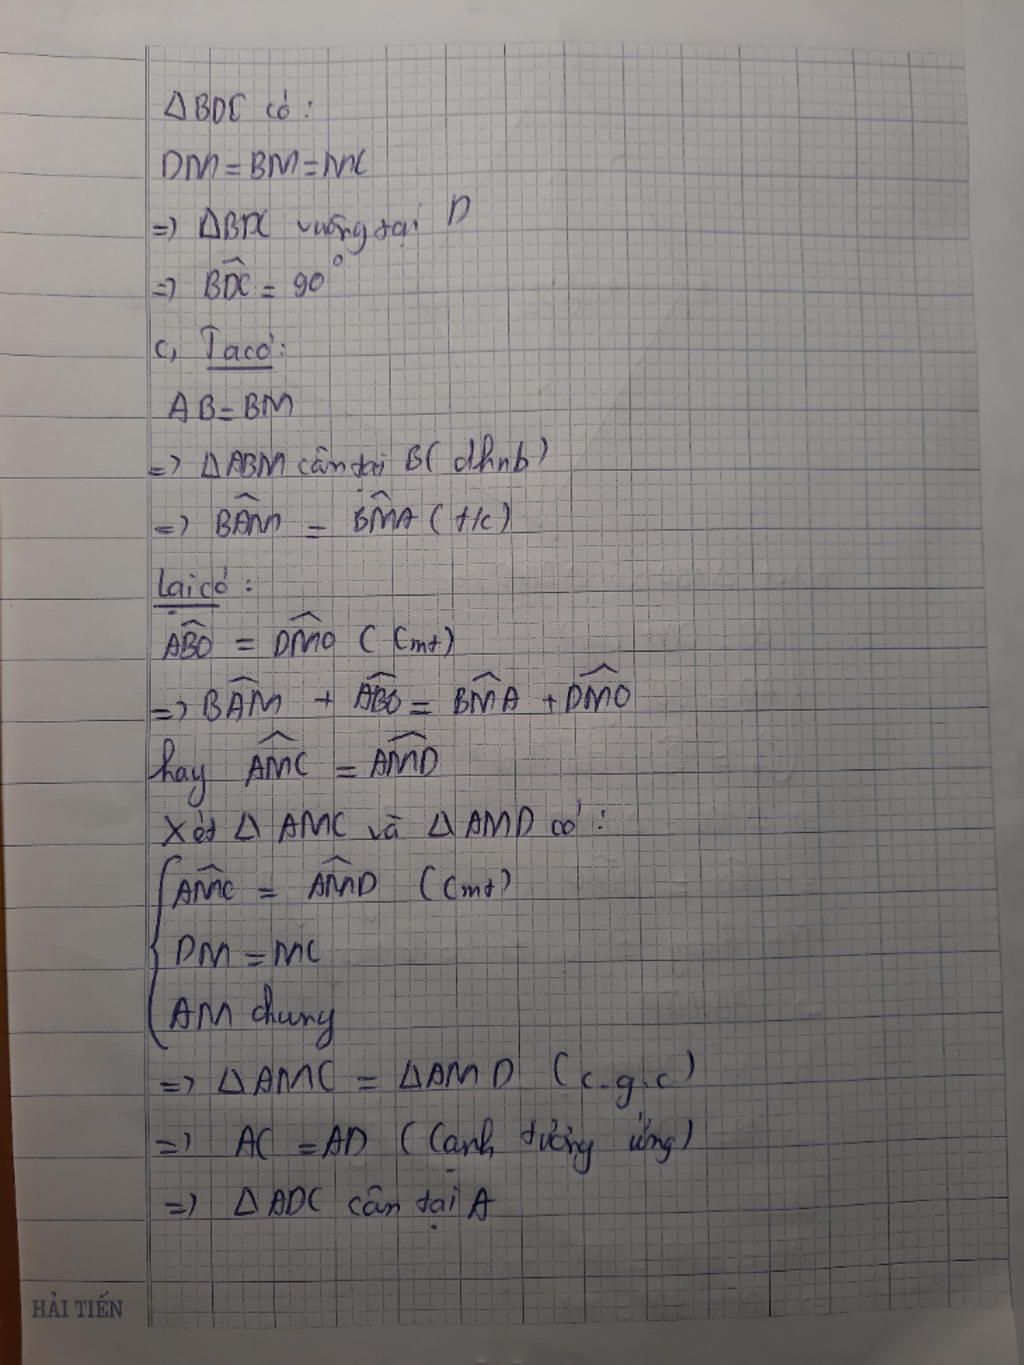 ΔBDC có:
DM = BM = MC
=> ΔBDC vuông tại D
=> BDC = 90°
c, Ta có:
AB = BM
=> ΔABM cân tại B ( dhnb )
=> BAM = BMA ( t/c )
Lại có:
ABO = DMO ( Cmt )
=> BAM + ABO = BMA + DMO
hay AMC = AMD
Xét Δ AMC và Δ AMD có:
AMC = AMD ( Cmt )
DM = MC
AM chung
=> ΔAMC = ΔAMD ( c.g.c )
=> AC = AD ( Cạnh tưởng ứng )
=> ΔADC cân tại A
HẢI TIẾN